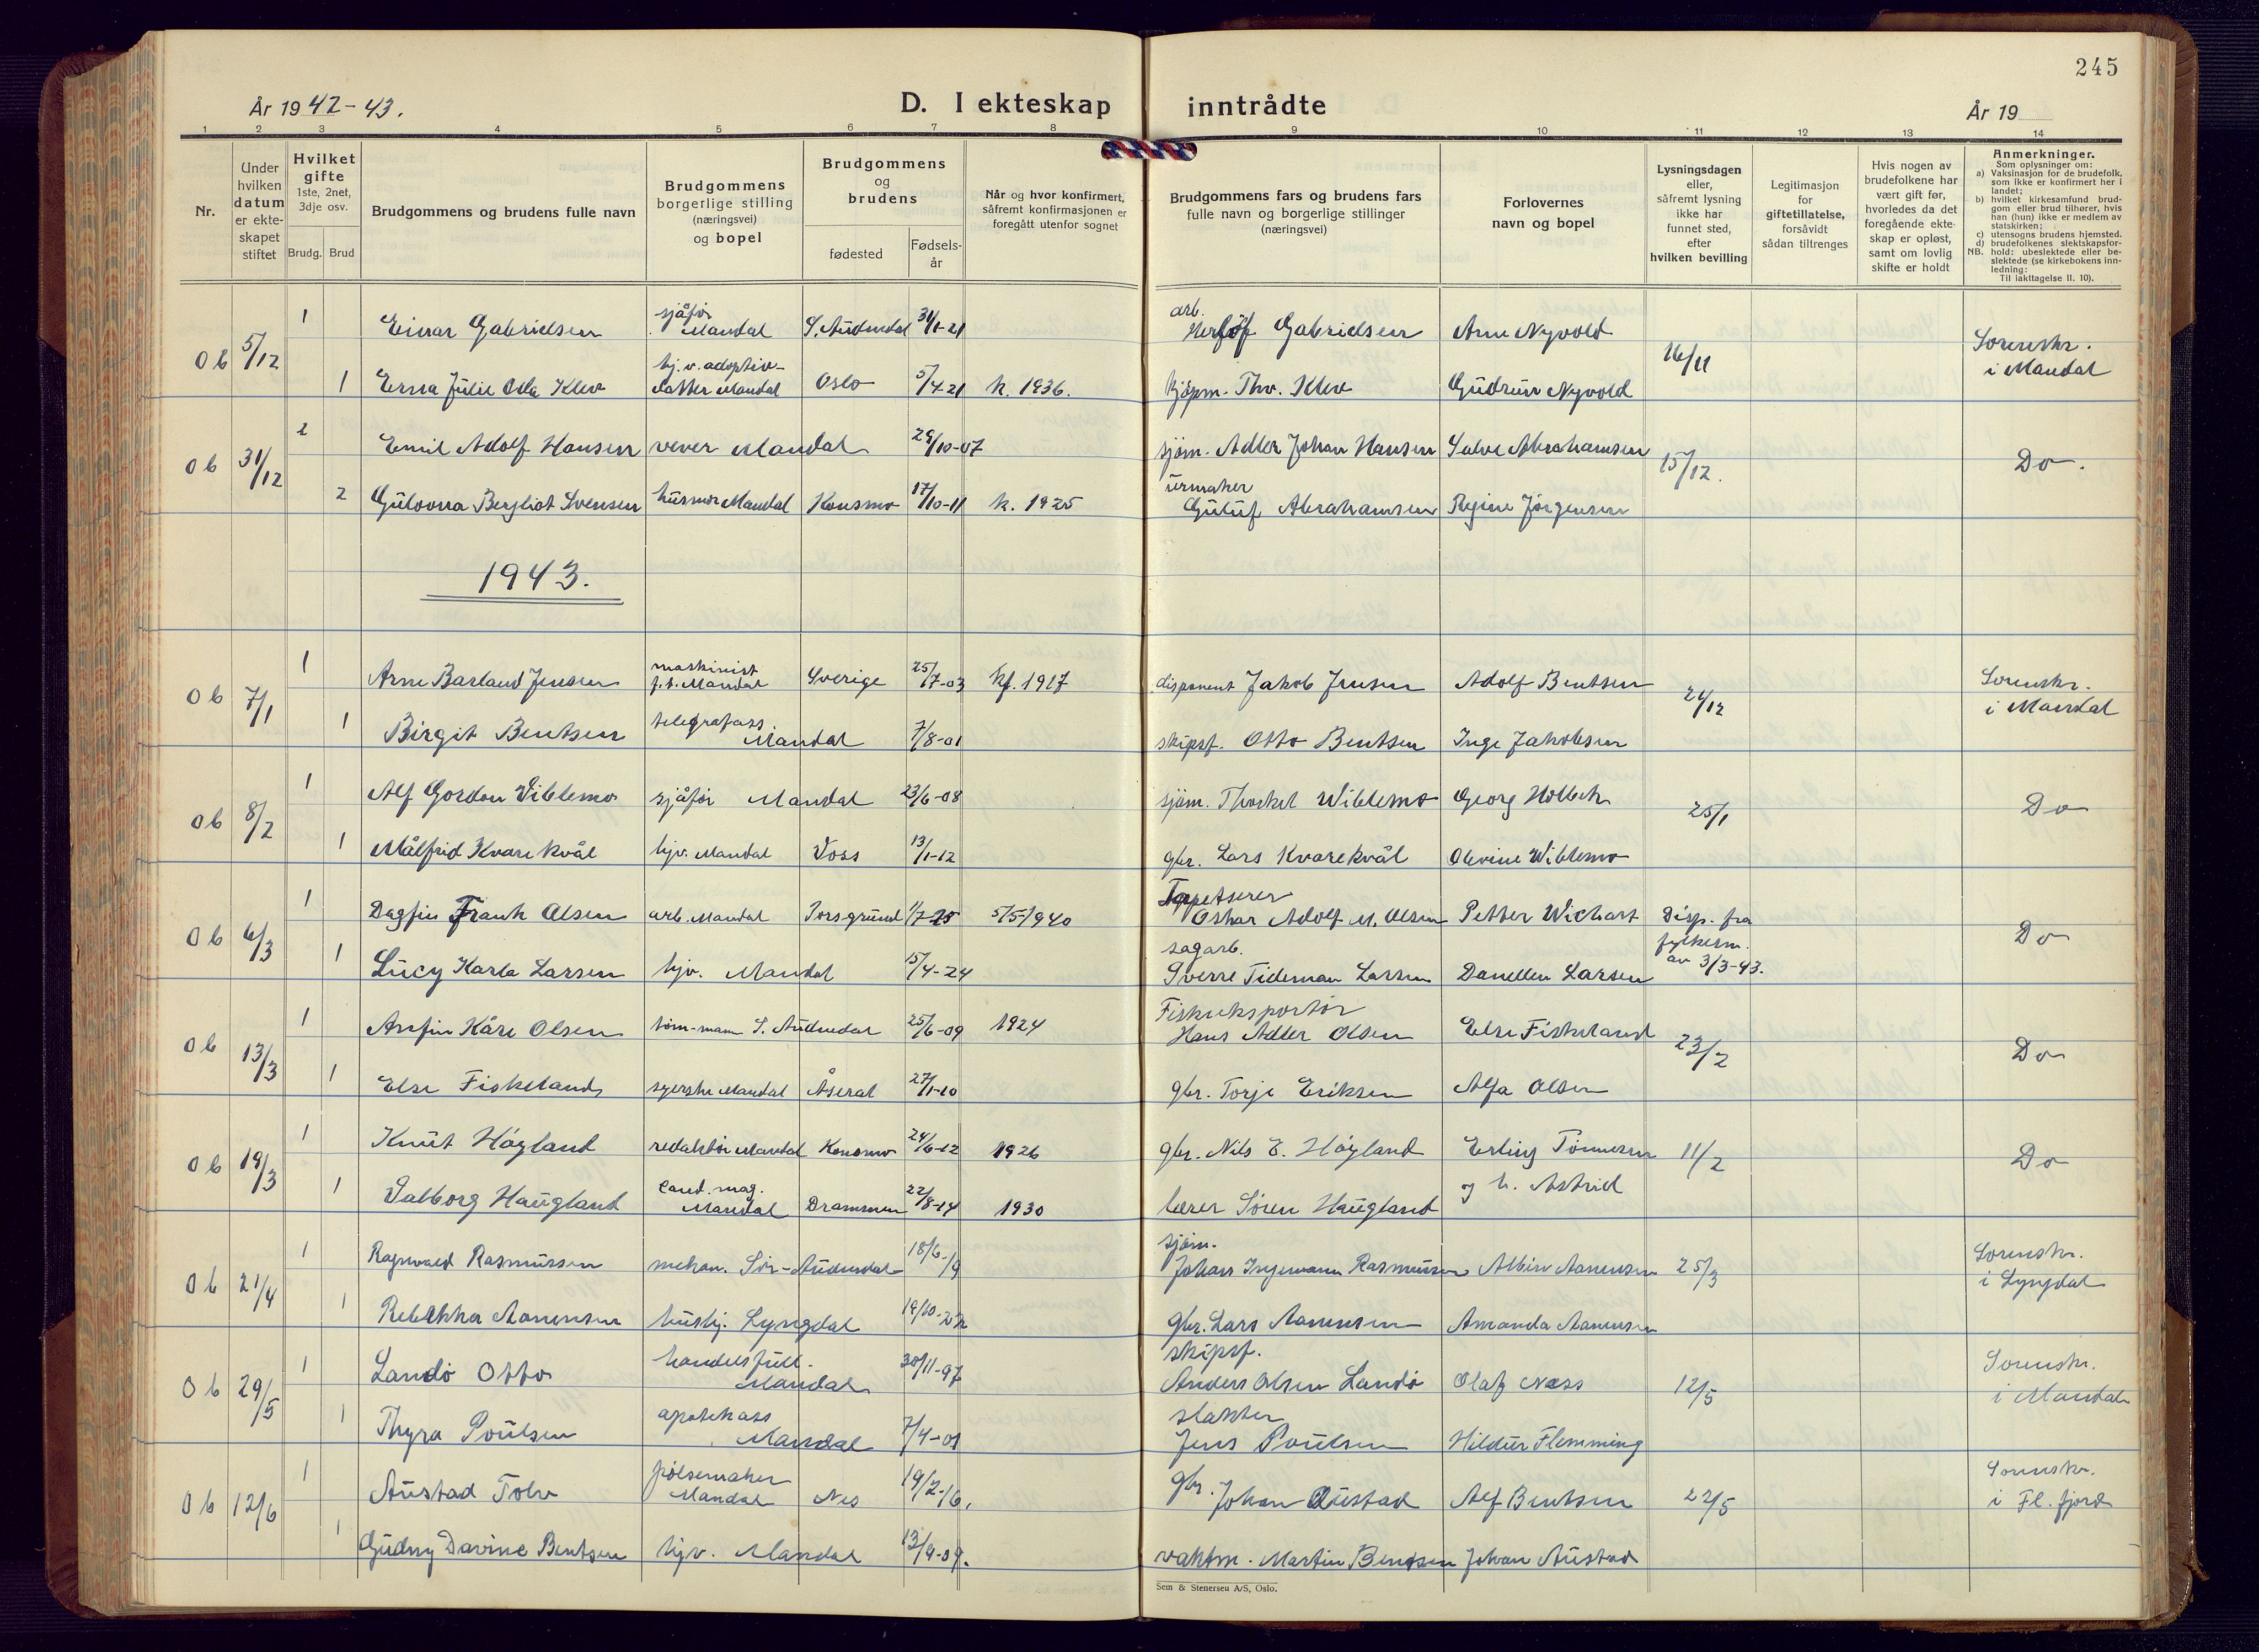 245
År 1942-43.
D. I ekteskap inntrådte
År 19
1 2 3 4 5 6 7 8 9 10 11 12 13 14
Nr.
Under
hvilken
datum
er ekte-
skapet
stiftet
Hvilket
gifte
1ste, 2net,
3dje osv.
Brudg. Brud
Brudgommens og brudens fulle navn
Brudgommens
borgerlige stilling
(næringsvei)
og bopel
Brudgommens
og
brudens
fødested
Fødsels-
år
Når og hvor konfirmert,
såfremt konfirmasjonen er
foregått utenfor sognet
Brudgommens fars og brudens fars
fulle navn og borgerlige stillinger
(næringsvei)
Forlovernes
navn og bopel
Lysningsdagen
eller,
såfremt lysning
ikke har
funnet sted,
efter
hvilken bevilling
Legitimasjon
for
giftetillatelse,
forsåvidt
sådan tiltrenges
Hvis nogen av
brudefolkene har
vært gift før,
hvorledes da det
foregående ekte-
skap er opløst,
samt om lovlig
skifte er holdt
Anmerkninger.
Som oplysninger om:
a) Vaksinasjon for de brudefolk,
som ikke er konfirmert her i
landet;
b) hvilket kirkesamfund brud-
gom eller brud tilhører, hvis
han (hun) ikke er medlem av
statskirken;
c) utensogns brudens hjemsted.
d) brudefolkenes slektskapsfor-
NB. hold: ubeslektede eller be-
slektede (se kirkebokens inn-
ledning:
Til iakttagelse II. 10).
Ob 5/12 1 Einar Gabrielsen sjåfør Mandal S. Audnedal 31/1-21 arb. Gabrielsen Arne Nyvold 16/11 Sorenskr. i Mandal
1 Erna Julie Osla Klev hj. v. adoptiv-datter Mandal Oslo 5/4-21 k. 1936. kjøpm. Thv. Klev Gudrun Nyvold
Ob 31/12 2 Emil Adolf Hansen vever Mandal 29/10-07 sjøm. Adler Johan Hansen Salve Abrahamsen 15/12. Do.
2 Gulovna Bergliot Svensen husmor Mandal Konsmo 17/10-11 k. 1925 urmaker Guluf Abrahamsen Regine Jørgensen
1943.
Ob 7/1 1 Arne Barland Jensen maskinist f.t. Mandal Sverige 25/7-03 kf. 1917 disponent Jakob Jensen Adolf Bentsen 24/12 Sorenskr. i Mandal
1 Birgit Bentsen telegrafass. Mandal 7/8-01 skipsf. Otto Bentsen Inge Jakobsen
Ob 8/2 1 Alf Gordon Viblemo sjåfør Mandal 23/6-08 sjøm. Thorkel Wiblemo Georg Holbek 25/1 Do
1 Målfrid Kvarekvål hjv. Mandal Voss 13/1-12 gbr. Lars Kvarekvål Olevine Wiblemo
Ob 6/3 1 Dagfin Frank Olsen arb. Mandal Porsgrund 1/7-25 5/5 1940 Tapetserer Oskar Adolf M. Olsen Petter Wichart Disp. fra fylkesm. av 3/3-43. Do
1 Lucy Karla Larsen hjv. Mandal 15/4-24 sagarb. Sverre Tideman Larsen Danellen Larsen
Ob 13/3 1 Arnfin Kåre Olsen tøm-mann S. Audnedal 25/6-09 1924 Fiskeksportør Hans Adler Olsen Else Fiskeland 23/2 Do
1 Else Fiskeland syerske Mandal Åseral 27/1-10 gbr. Torje Eriksen Alfa Olsen
Ob 19/3 1 Knut Høyland redaktør Mandal Konsmo 24/6-12 1926 gbr. Nils E. Høyland Erling Tønnesen 11/2 Do
1 Valborg Haugland cand. mag. Mandal Drammen 22/8-14 1930 lærer Søren Haugland og h. Astrid
Ob 21/4 1 Ragnvald Rasmussen mekan. Sør-Audnedal 18/6-19 sjøm. Johans Ingemann Rasmussen Albin Aanensen 25/3 Sorenskr. i Lyngdal
1 Rebekka Aanensen hushj. Lyngdal 19/10-22 gbr. Lars Aanensen Amanda Aanensen
Ob 29/5 1 Landø Otto handelsfull. Mandal 30/11-97 skipsf. Anders Olsen Landø Olaf Næss 12/5 Sorenskr. i Mandal
1 Thyra Poulsen apotekass Mandal 7/4-01 slakter Jens Poulsen Hildur Flemming
Ob 12/6 1 Austad Tolv pølsemaker Mandal Nes 19/2-16. gbr. Johan Austad Alf Bentsen 22/5 Sorenskr. i Fl. fjord
1 Gudny Davine Bentsen hjv. Mandal 13/9-09. vaktm. Martin Bentsen Johan Austad
Sem & Stenersen A/S, Oslo.